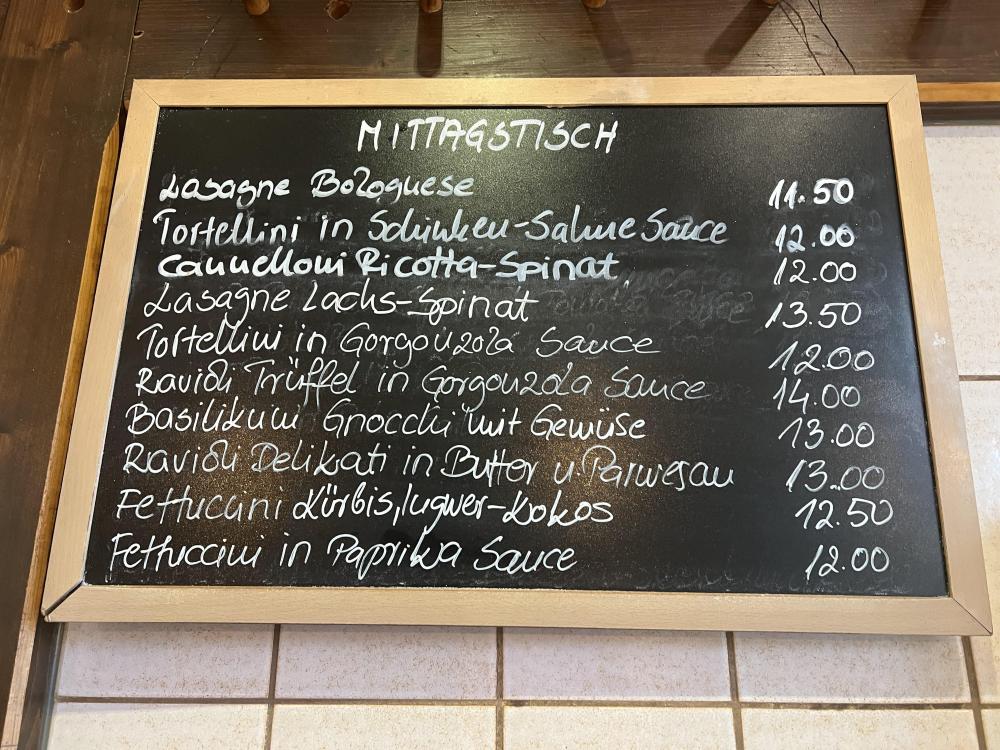 MITTAGSTISCH
Lasagne Bolognese 11.50
Tortellini in Schinken-Sahne Sauce 12.00
Cannelloni Ricotta-Spinat 12.00
Lasagne Lachs-Spinat 13.50
Tortellini in Gorgonzola Sauce 12.00
Ravioli Trüffel in Gorgonzola Sauce 14.00
Basilikum Gnocchi mit Gewüse 13.00
Ravioli Delikati in Butter u. Parmesan 13.00
Fettuccini Kürbis, Ingwer-Kokos 12.50
Fettuccini in Paprika Sauce 12.00